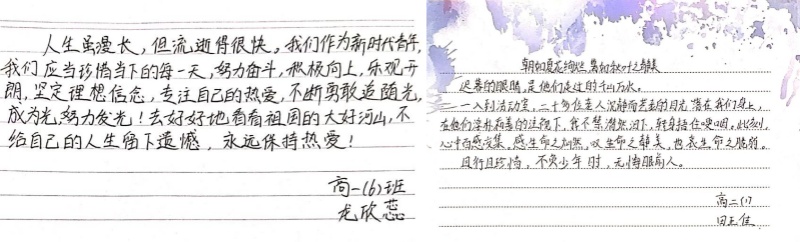 人生虽漫长，但流逝得很快，我们作为新时代青年，
我们应当珍惜当下的每一天，努力奋斗，积极向上，乐观开
朗，坚定理想信念，专注自己的热爱，不断勇敢追随光，
成为光，努力发光！去好好地看看祖国的大好河山，不
给自己的人生留下遗憾，永远保持热爱！
高一(6)班
龙欣蕊
朝如夏花绚烂 暮如秋叶之静美
迟暮的眼睛，是他们走过的千山万水。
一入到活动室，二十多位老人沉静而苍老的目光落在我们身上，
在他们淳朴和善的注视下，我不禁潸然泪下，转身捂住哽咽。此刻，
心中百感交集，感生命之灿然，叹生命之静美，也哀生命之脆弱。
且行且珍惜，不负少年时，无悔眼前人。
高二(1)
田正佳